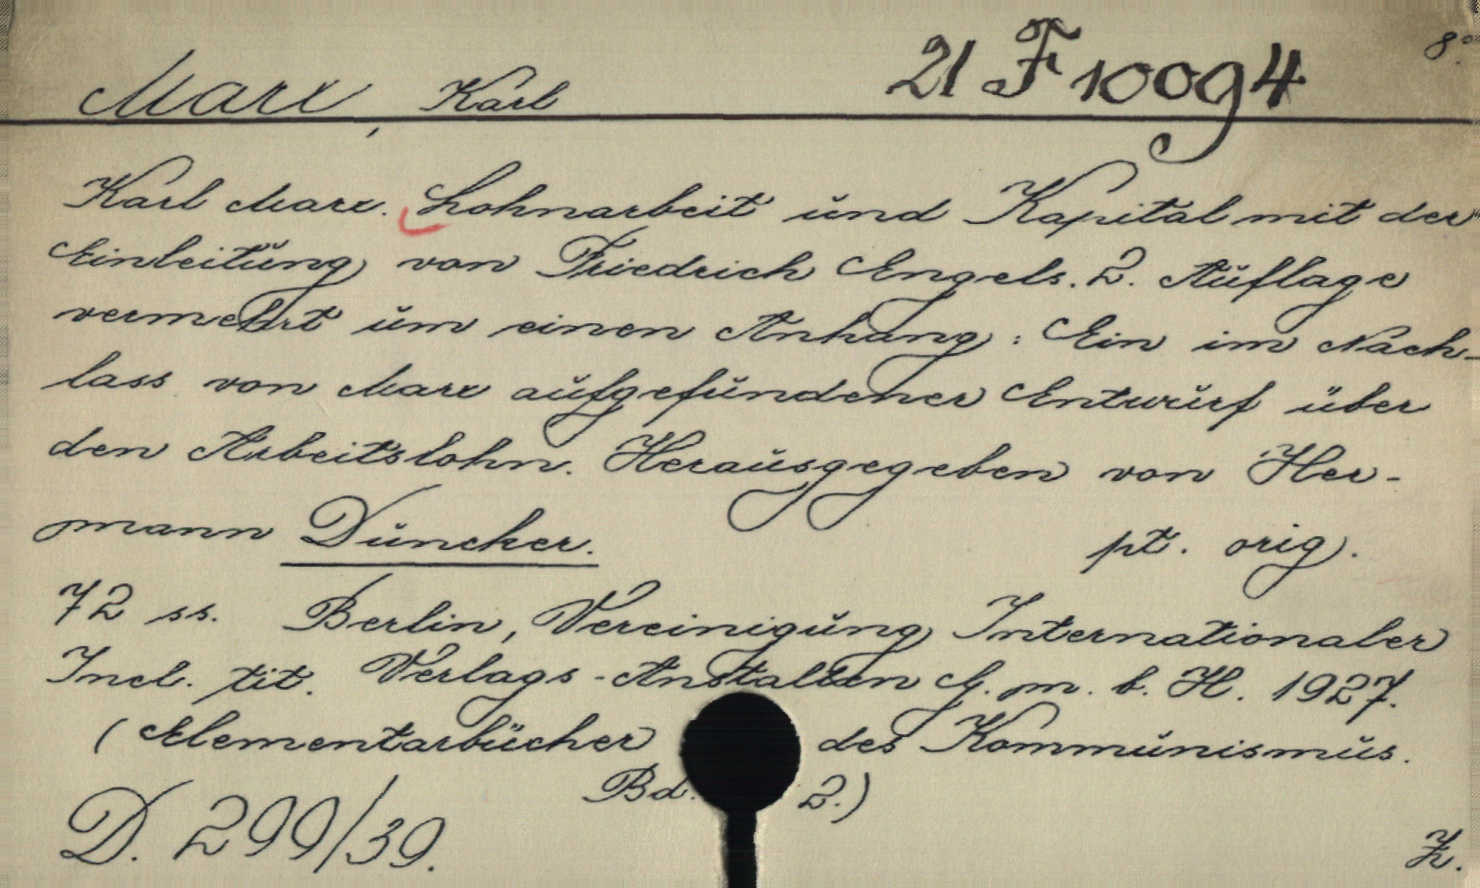 Marx, Karl 21 F 10094 8°
Karl Marx. Lohnarbeit und Kapital mit der
Einleitung von Friedrich Engels. 2. Auflage
vermehrt um einen Anhang: Ein im Nach-
lass von Marx aufgefundener Entwurf über
den Arbeitslohn. Herausgegeben von Her-
mann Duncker. pt. orig.
72 ss. Berlin, Vereinigung Internationaler
Incl. tit. Verlags-Anstalten G. m. b. H. 1927.
(Elementarbücher des Kommunismus.
Bd. 2.)
D. 299/39.